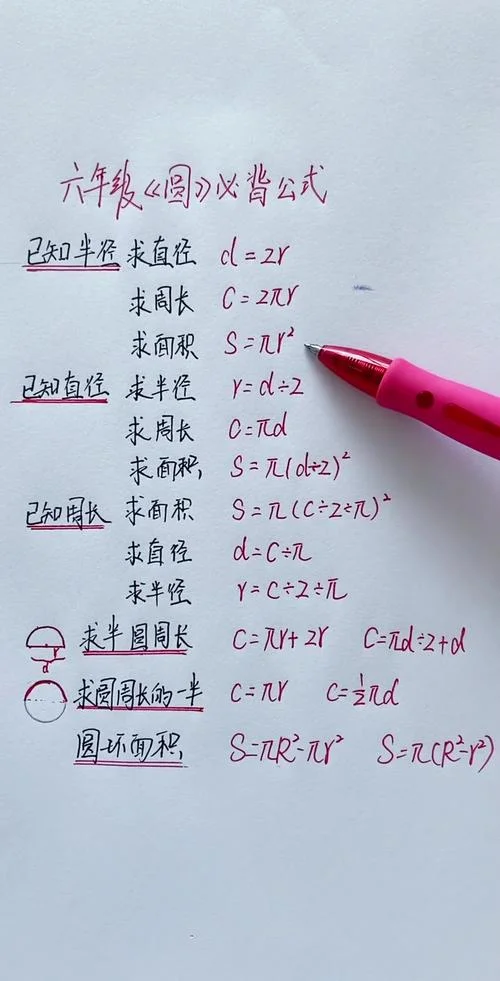 六年级《圆》必背公式
已知半径 求直径 d=2r
求周长 C=2πr
求面积 S=πr²
已知直径 求半径 r=d÷2
求周长 C=πd
求面积 S=π(d÷2)²
已知周长 求面积 S=π(C÷2÷π)²
求直径 d=C÷π
求半径 r=C÷2÷π
求半圆周长 C=πr+2r C=πd÷2+d
d
求圆周长的一半 C=πr C=½πd
圆环面积 S=πR²-πr² S=π(R²-r²)